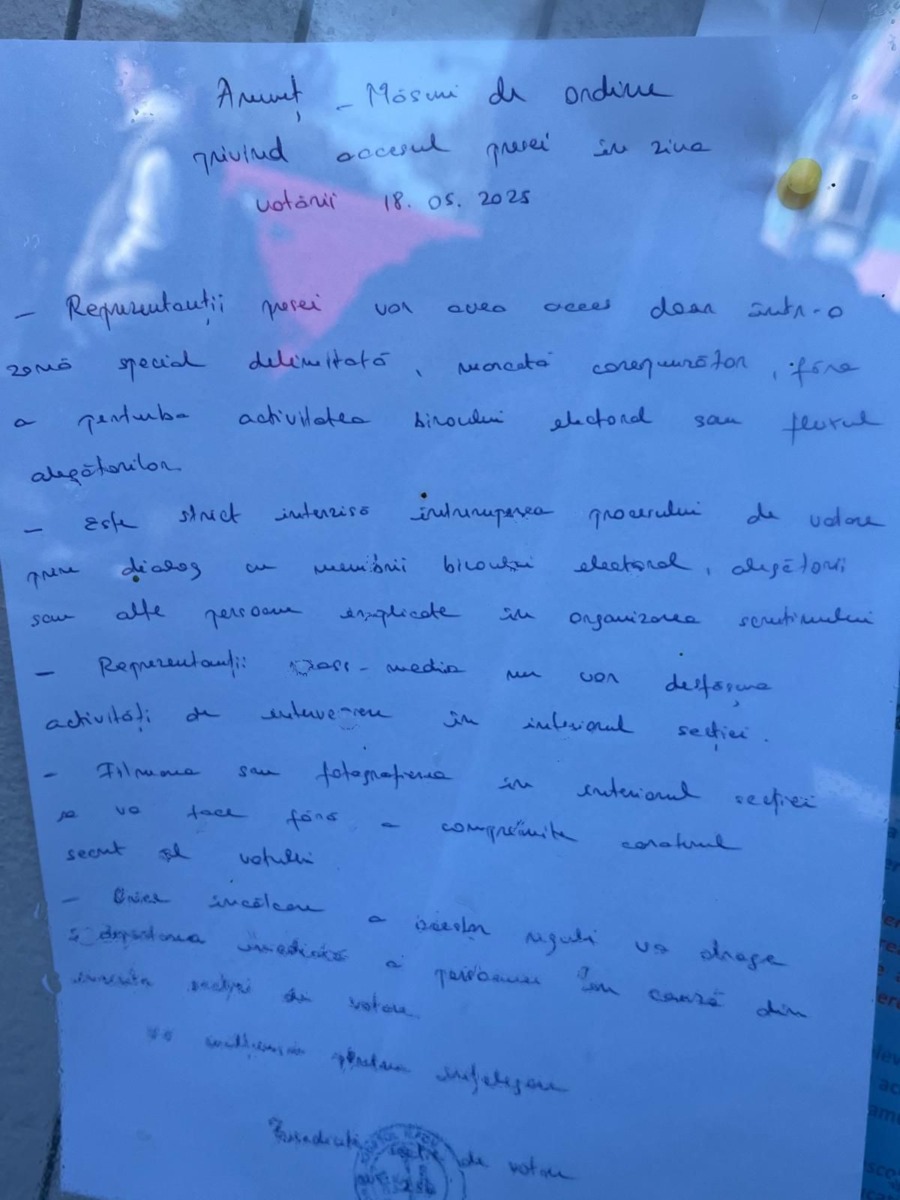 Anunț - Măsuri de ordine
privind accesul presei în ziua
votării 18. 05. 2025
- Reprezentanții presei vor avea acces doar într-o
zonă special delimitată, marcată corespunzător, fără
a perturba activitatea biroului electoral sau fluxul
alegătorilor.
- Este strict interzisă întreruperea procesului de votare
prin dialog cu membrii biroului electoral, alegătorii
sau alte persoane implicate în organizarea scrutinului
- Reprezentanții mass-media nu vor desfășura
activități de intervievare în interiorul secției.
- Filmarea sau fotografierea în interiorul secției
se va face fără a compromite caracterul
secret al votului
- Orice încălcare a acestor reguli va atrage
îndepărtarea imediată a persoanei în cauză din
incinta secției de votare.
Vă mulțumim pentru înțelegere
secție de votare